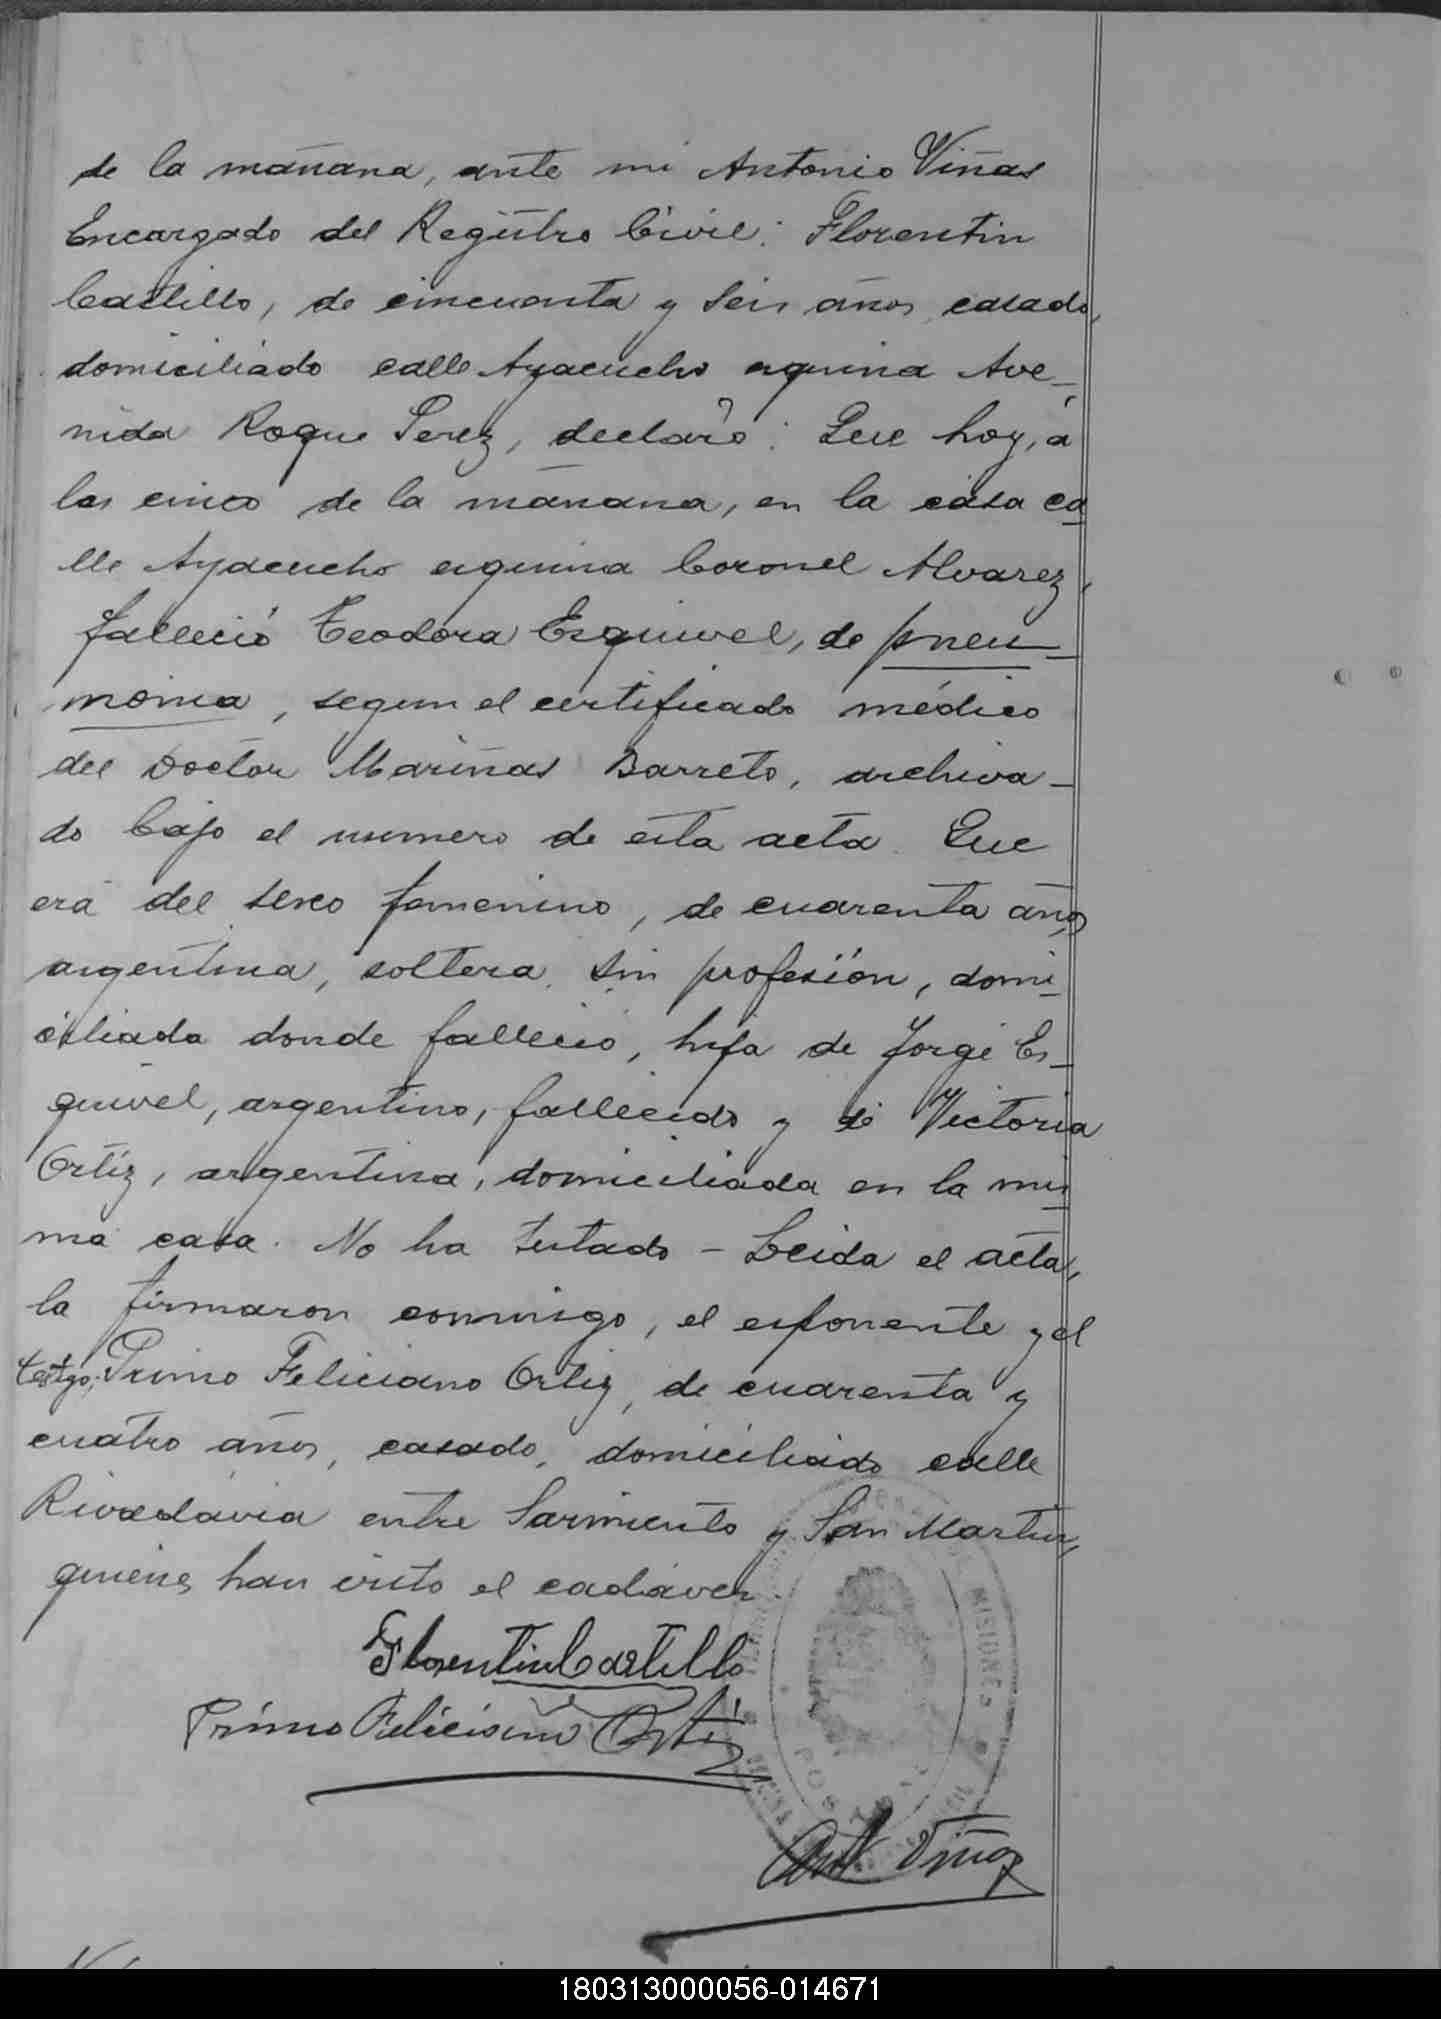 de la mañana, ante mi Antonio Viñas
Encargado del Registro Civil: Florentin
Castillo, de cincuenta y seis años, casado,
domiciliado calle Ayacucho esquina Ave-
nida Roque Perez, declaró: Que hoy, á
las cinco de la mañana, en la casa ca
lle Ayacucho esquina Coronel Alvarez,
falleció Teodora Esquivel, de pneu-
monia, segun el certificado médico
del Doctor Mariñas Barreto, archiva-
do bajo el numero de esta acta. Que
era del sexo femenino, de cuarenta años
argentina, soltera, sin profesión, domi
ciliada donde falleció, hija de Jorge Es-
quivel, argentino, fallecido y de Victoria
Ortiz, argentina, domiciliada en la mis
ma casa. No ha testado - Leida el acta,
la firmaron conmigo, el exponente y el
testigo: Primo Feliciano Ortiz, de cuarenta y
cuatro años, casado, domiciliado calle
Rivadavia entre Sarmiento y San Martin,
quienes han visto el cadáver.
Florentin Castillo
Primo Feliciano Ortiz
MISIONES
POSADAS
Ant Viñas
180313000056-014671